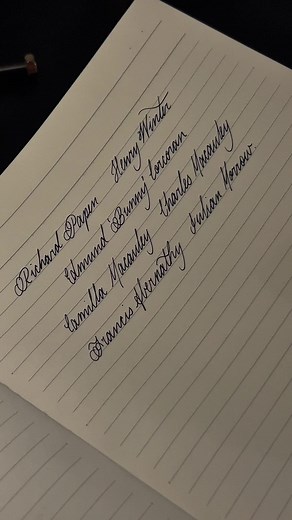 Richard Papen Henry Winter
Edmund 'Bunny' Corcoran
Camilla Macaulay Charles Macaulay
Francis Abernathy Julian Morrow.